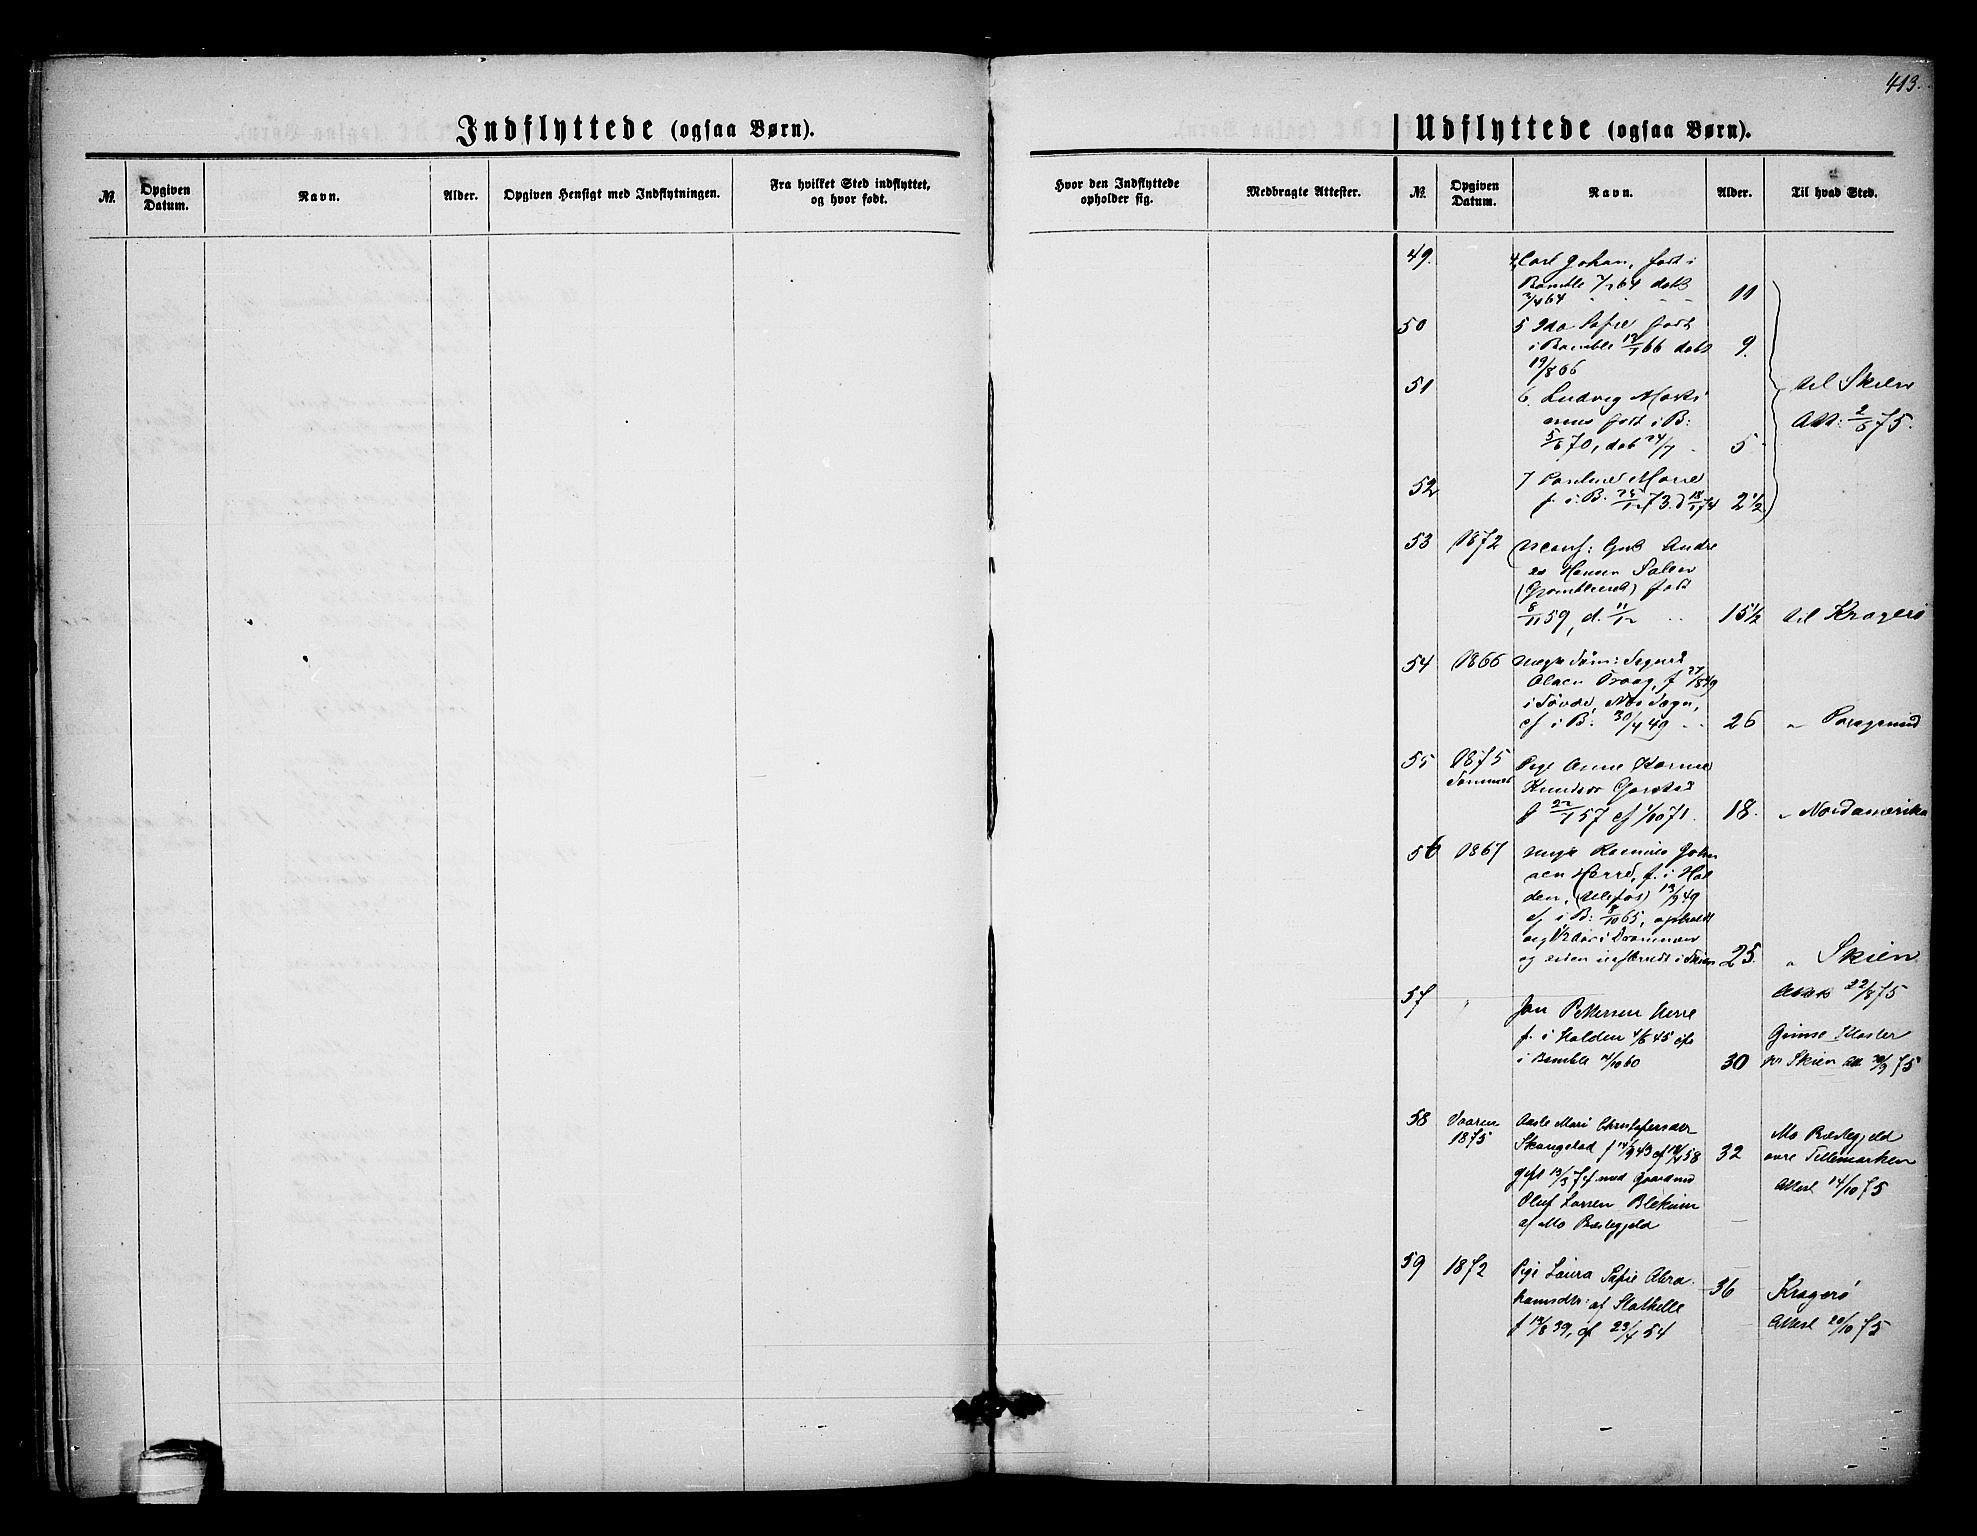 413.
Indflyttede (ogsaa Børn).
Udflyttede (ogsaa Børn).
№. Opgiven Datum. Navn. Alder. Opgiven Hensigt med Indflytningen. Fra hvilket Sted indflyttet, og hvor født. Hvor den Indflyttede opholder sig. Medbragte Attester. №. Opgiven Datum. Navn. Alder. Til hvad Sted.
49. 4, Carl Johan, født i
Bamble 7/2 64 døbt
3/4 64 11
50 5 Ida Sofie født
i Bamble 12/7 66 døbt 9.
19/8 66
51 6. Ludvig
født i B:
5/6 70, døb 24/7 5
til Skien
Att: 2/5 75.
52 7 Pauline Marie
f. i. B. 25/12 73. d 18/1 74 2 1/2
53 1872 Uconf: Gut Andre
as Hansen
født
8/11 59, d. 11/12 15 1/2 til Kragerø
54 1866
Olsen
i
cf i B: 30/4 49 26 "
55 1875 Pige Anne Karine
Sommer Knudsdr
f 22/1 57 cf 1/10 71. 18. " Nordamerika
56 1867 Ungk Rasmus Johan
sen Herre, f. i Hol
den, (Ulefos) 13/9 49
cf i B: 8/10 65, opholdt
sig i Drammen
og siden i Skien 25. " Skien
Attest 22/8 75
57 " Jon Pettersen Herre
f. i Holden 4/6 45 cf
i Bamble 7/10 60 30
Gimsø Kloster
pr Skien Att 30/9 75
58 Vaaren 1875 Aasle Mari Christofersdtr
Skougstad f 14/9 43 cf 18/4 58 32
gift 13/5 74 med Gaardmd
Oluf Larsen Blekum
af Mo Præstegjeld
Mo Præstegjeld
øvre Tellemarken
Attest 14/10 75
59 1872 Pige Laura Sofie Abra
hamsdtr: af Stathelle 36
f 13/8 39, cf 23/4 54
Kragerø
Attest 20/10 75